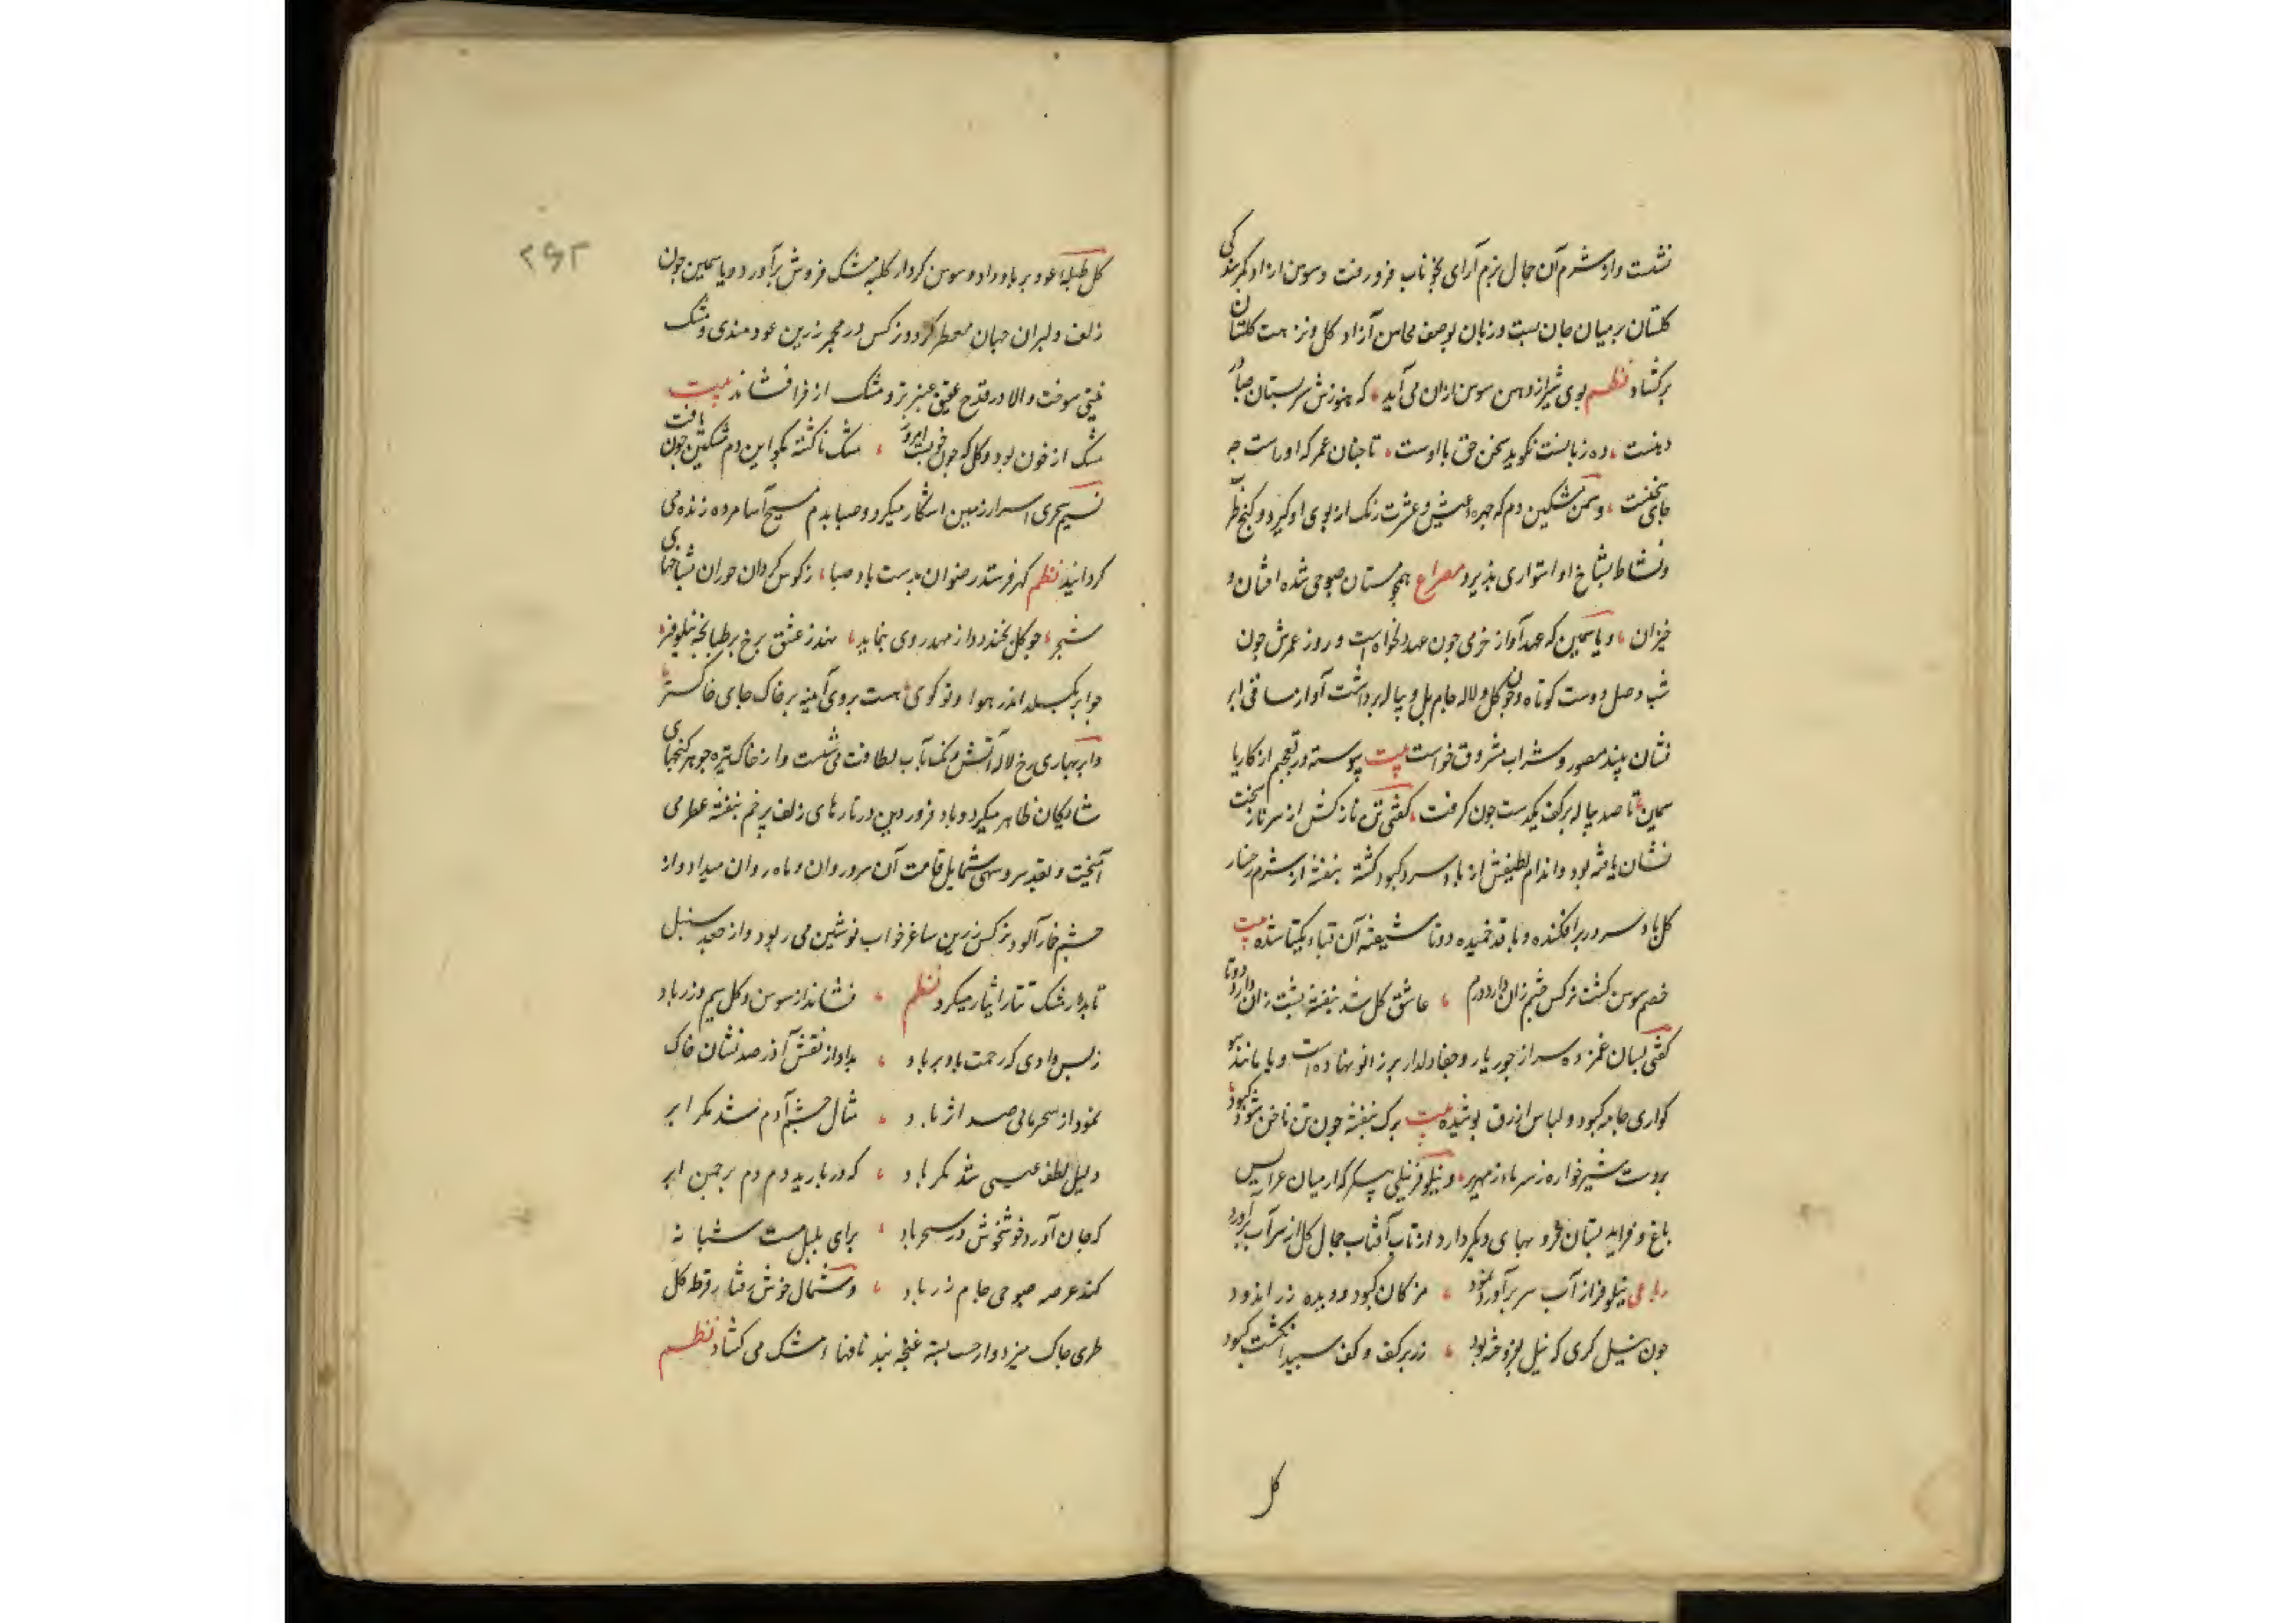 نشست و از شرم آن جمال بزم آرای بخوناب فرو رفت و سوسن ازاد کمر بندکی
کلستان بر میان جان بست و زبان بوصف محاسن آزاد کل و نزهت کلستان
برکشاد نظم بوی شیر از دهن سوسن ازان می آید که هنوزش سر بستان صبا در
دهنست ده زبانست نکوید سخن حق با اوست تا جنان عمر که او راست چه
جای سخنست و سمن مشکین دم که چهره عیش و عشرت رنک از بوی او کیرد و
و نشاط بشاخ او استواری پذیرد مصراع همچو مستان صبوحی شده افتان و
خیزان و یاسمین که عهد آواز خرمی چون عهد دلخواه است و روز عمرش چون
شب وصل دوست کوتاه و چون کل و لاله جام مل و پیاله برداشت آواز ساقی ابر
نشان پند مصور و شراب مشروق خواست بیت پیوسته در تعجبم از کار یا
سمین تا صد پیاله بر کف یکدست چون کرفت کفتی تن نازکش از سر ناز
نشان یافته بود و اندام لطیفش از باد سرد کبود کشته بنفشه از شرم رخسار
کل باد سر در بر افکنده و با قد خمیده دوتا شیفته آن قبا و یکتا شده بیت
خصم سوسن کشت نرکس چشم زان دارد دژم عاشق کل شد بنفشه پشت زان دارد دوتا
کفتی بسان غمزده سر از جور یار و جفا دلدار بر زانو نهاده است و یا مانند سو
کواری جامه کبود و لباس ازرق پوشیده بیت برک بنفشه چون تن ناخن شود کبود
بر دست شیرخواره ز سرما زمهریر و نیلوفر نیلی پیکر که از میان عرایس
باغ و فراید بستان فر و بهای دیکر دارد از تاب آفتاب جمال کل از سر آب برآورد
رباعی نیلوفر از آب سر برآورد نمود مژکان کبود و دیده زر اندود
چون نیل کری که نیل بفروخته بود زر بر کف و کف سپید انکشت کبود
کل
۲۶۲
کل طبلهٔ عود بر باد داد و سوسن کردار کلبه مشک فروش برآورد و یاسمین چون
زلف دلبران جهان معطر کرد و نرکس در مجمر زرین عود هندی و مشک
تبتی سوخت و لالا در قدح عقیق عنبر تر و مشک از فرا فشاند بیت
مشک از خون بود و کل که چون خون بست امروز مشک ناکشته بکو این دم مشکین چون یافت
نسیم سحری اسرار زمین اشکار میکرد و صبا بدم مسیح آسا مرده زنده می
کردانید نظم کهر فرستد رضوان بدست باد صبا ز کوش کردان حوران بشاخهای
شجر چو کل بخندد و از مهد روی بنماید نهد ز عشق برخ بر طبانچه نیلوفر
چو ابر بکسلد اندر هوا و تو کوی هست بروی آینه بر خاک جای خاکستر
و ابر بهاری رخ لاله آتش رنک بآب لطافت می شست و از خاک تیره جوهر کنجهای
شایکان ظاهر میکرد و باد فروردین در تارهای زلف پر خم بنفشه عطر می
آمیخت و بقد سرو سهی شمایل قامت آن سرو روان و ماه روان میداد و از
چشم خمار آلود نرکس زرین ساغر خواب نوشین می ربود و از جعد سنبل
تابدار مشک تتار نثار میکرد نظم فشاند از سوسن و کل سیم و زر باد
زهی وادی که رحمت باد بر باد بداد از نقش آذر صد نشان خاک
نمود از سحر مانی صد اثر باد مثال چشم آدم شد مکر ابر
دلیل لطف عیسی شد مکر باد که در بارید دم دم بر چمن ابر
که جان آورد خوش خوش در سحر باد برای بلبل مست شبانه
کند عرضه صبوحی جام زر باد و شمال خوش رفتار قرطه کل
طری چاک میزد و از جیب بسته غنچه بند نافهاء مشک می کشاد نظم